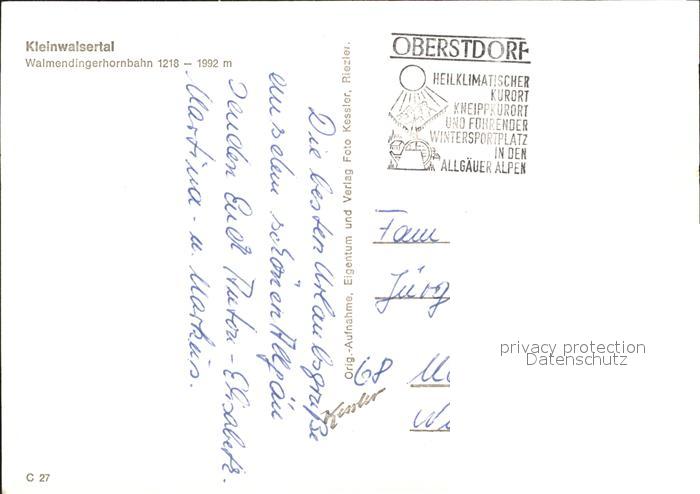 Kleinwalsertal
Walmendingerhornbahn 1218 — 1992 m
Die besten Urlaubsgrüße
aus dem schönen Allgäu
senden Euch Anton - Elisabeth.
Martina - u. Markus.
Orig.-Aufnahme, Eigentum und Verlag Foto Kessler, Riezler.
Kessler
OBERSTDORF
HEILKLIMATISCHER
KURORT
KNEIPPKURORT
UND FÜHRENDER
WINTERSPORTPLATZ
IN DEN
ALLGÄUER ALPEN
Fam
Jürg
68
privacy protection
Datenschutz
C 27